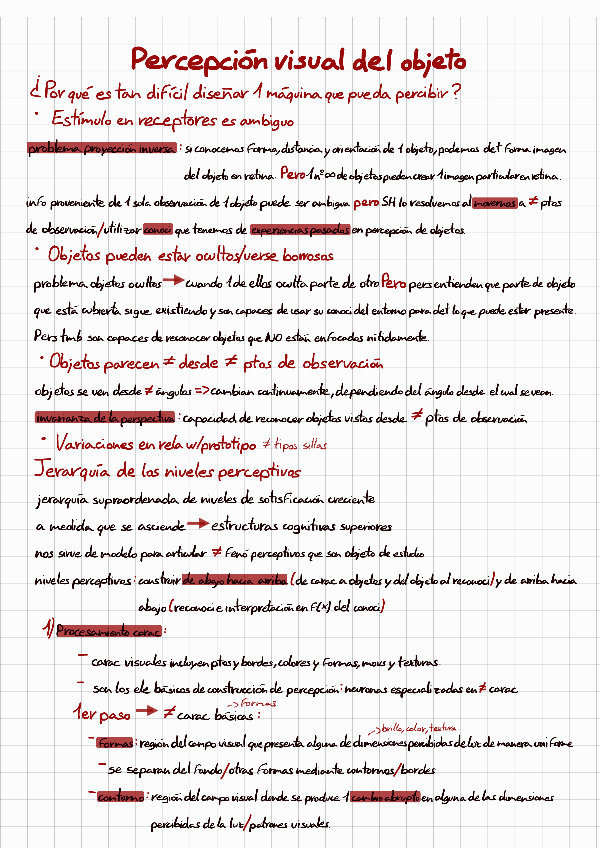 Percepción visual del objeto
¿Por qué es tan difícil diseñar 1 máquina que pueda percibir?
· Estímulo en receptores es ambiguo
problema proyección inversa: si conocemos forma, distancia y orientación de 1 objeto, podemos det forma imagen
del objeto en retina. Pero 1 nº ∞ de objetos pueden crear 1 imagen particular en retina.
info proveniente de 1 sola observación de 1 objeto puede ser ambigua pero SH lo resolvemos al movernos a ≠ ptos
de observación/utilizar conoci que tenemos de experiencias pasadas en percepción de objetos.
· Objetos pueden estar ocultos/verse borrosos
problema objetos ocultos → cuando 1 de ellos oculta parte de otro Pero pers entienden que parte de objeto
que está cubierta sigue existiendo y son capaces de usar su conoci del entorno para det lo que puede estar presente.
Pers tmb son capaces de reconocer objetos que NO están enfocados nítidamente.
· Objetos parecen ≠ desde ≠ ptos de observación
objetos se ven desde ≠ ángulos => cambian continuamente, dependiendo del ángulo desde el cual se vean.
invarianza de la perspectiva: capacidad de reconocer objetos vistos desde ≠ ptos de observación
· Variaciones en rela w/prototipo ≠ tipos sillas
Jerarquía de los niveles perceptivos
jerarquía supraordenada de niveles de sotisficación creciente
a medida que se asciende → estructuras cognitivas superiores
nos sirve de modelo para articular ≠ fenó perceptivos que son objeto de estudio
niveles perceptivos: construir de abajo hacia arriba (de carac a objetos y del objeto al reconoci) y de arriba hacia
abajo (reconoci e interpretación en f(x) del conoci)
1) Procesamiento carac:
- carac visuales incluyen ptos y bordes, colores y formas, movs y texturas.
- son los ele básicos de construcción de percepción: neuronas especializadas en ≠ carac
→ formas
1er paso → ≠ carac básicas:
→ brillo, color, textura
- formas: región del campo visual que presenta alguna de dimensiones percibidas de luz de manera uniforme
- se separan del fondo/otras formas mediante contornos/bordes
- contorno: región del campo visual donde se produce 1 cambio abrupto en alguna de las dimensiones
percibidas de la luz/patrones visuales.